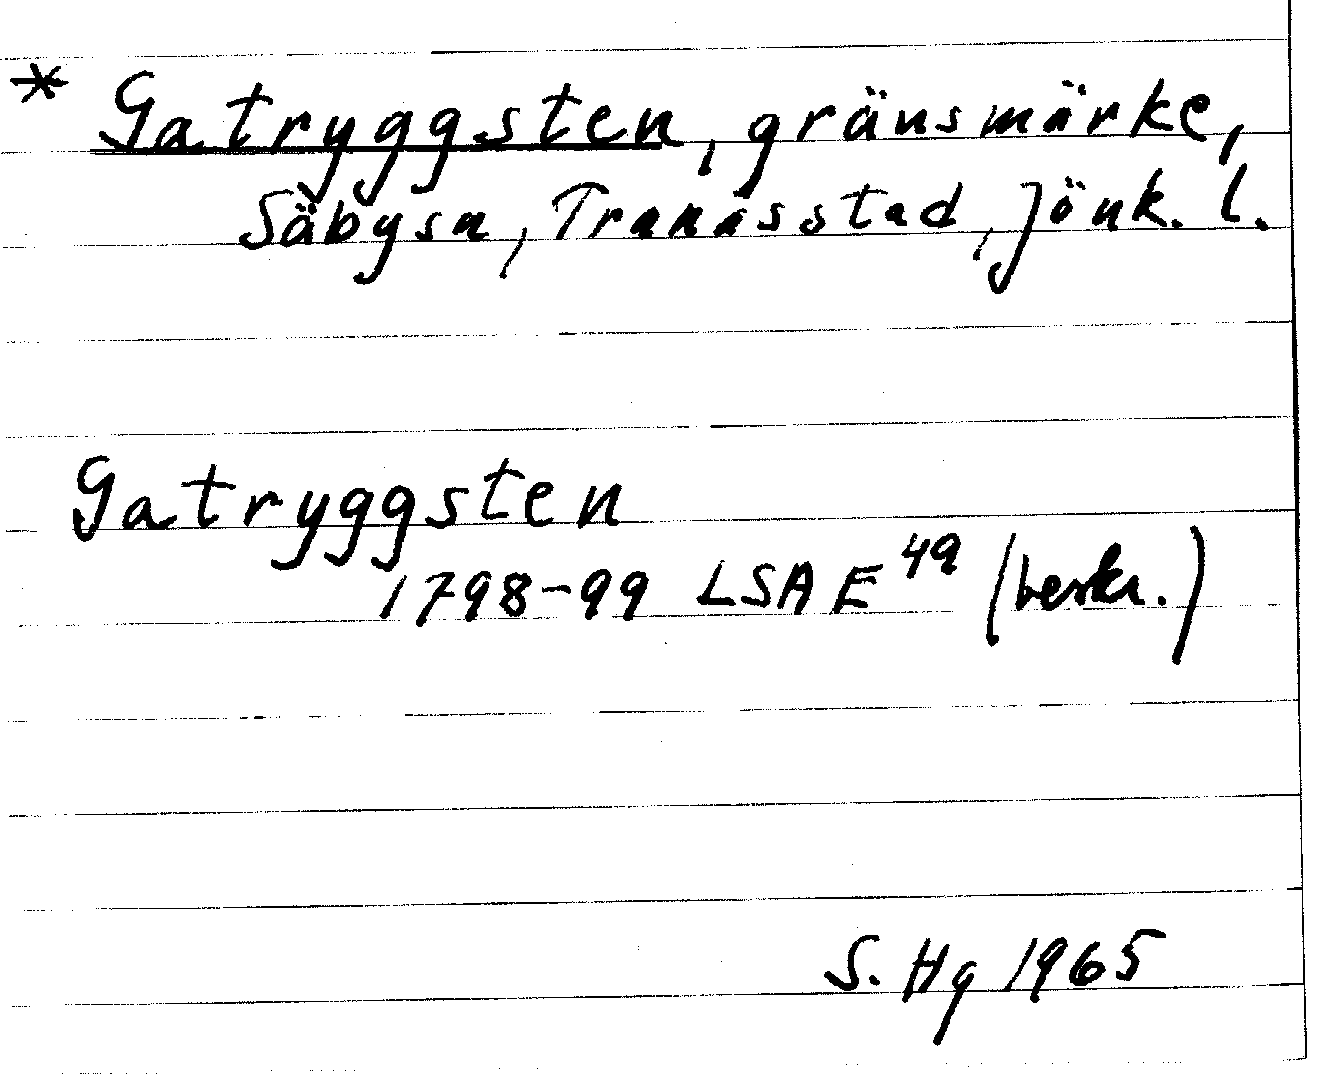 * Gatryggsten, gränsmärke,
Säbysn, Tranås stad, Jönk. l.
Gatryggsten
1798-99 LSA E 49 (beskr.)
S. Hg 1965